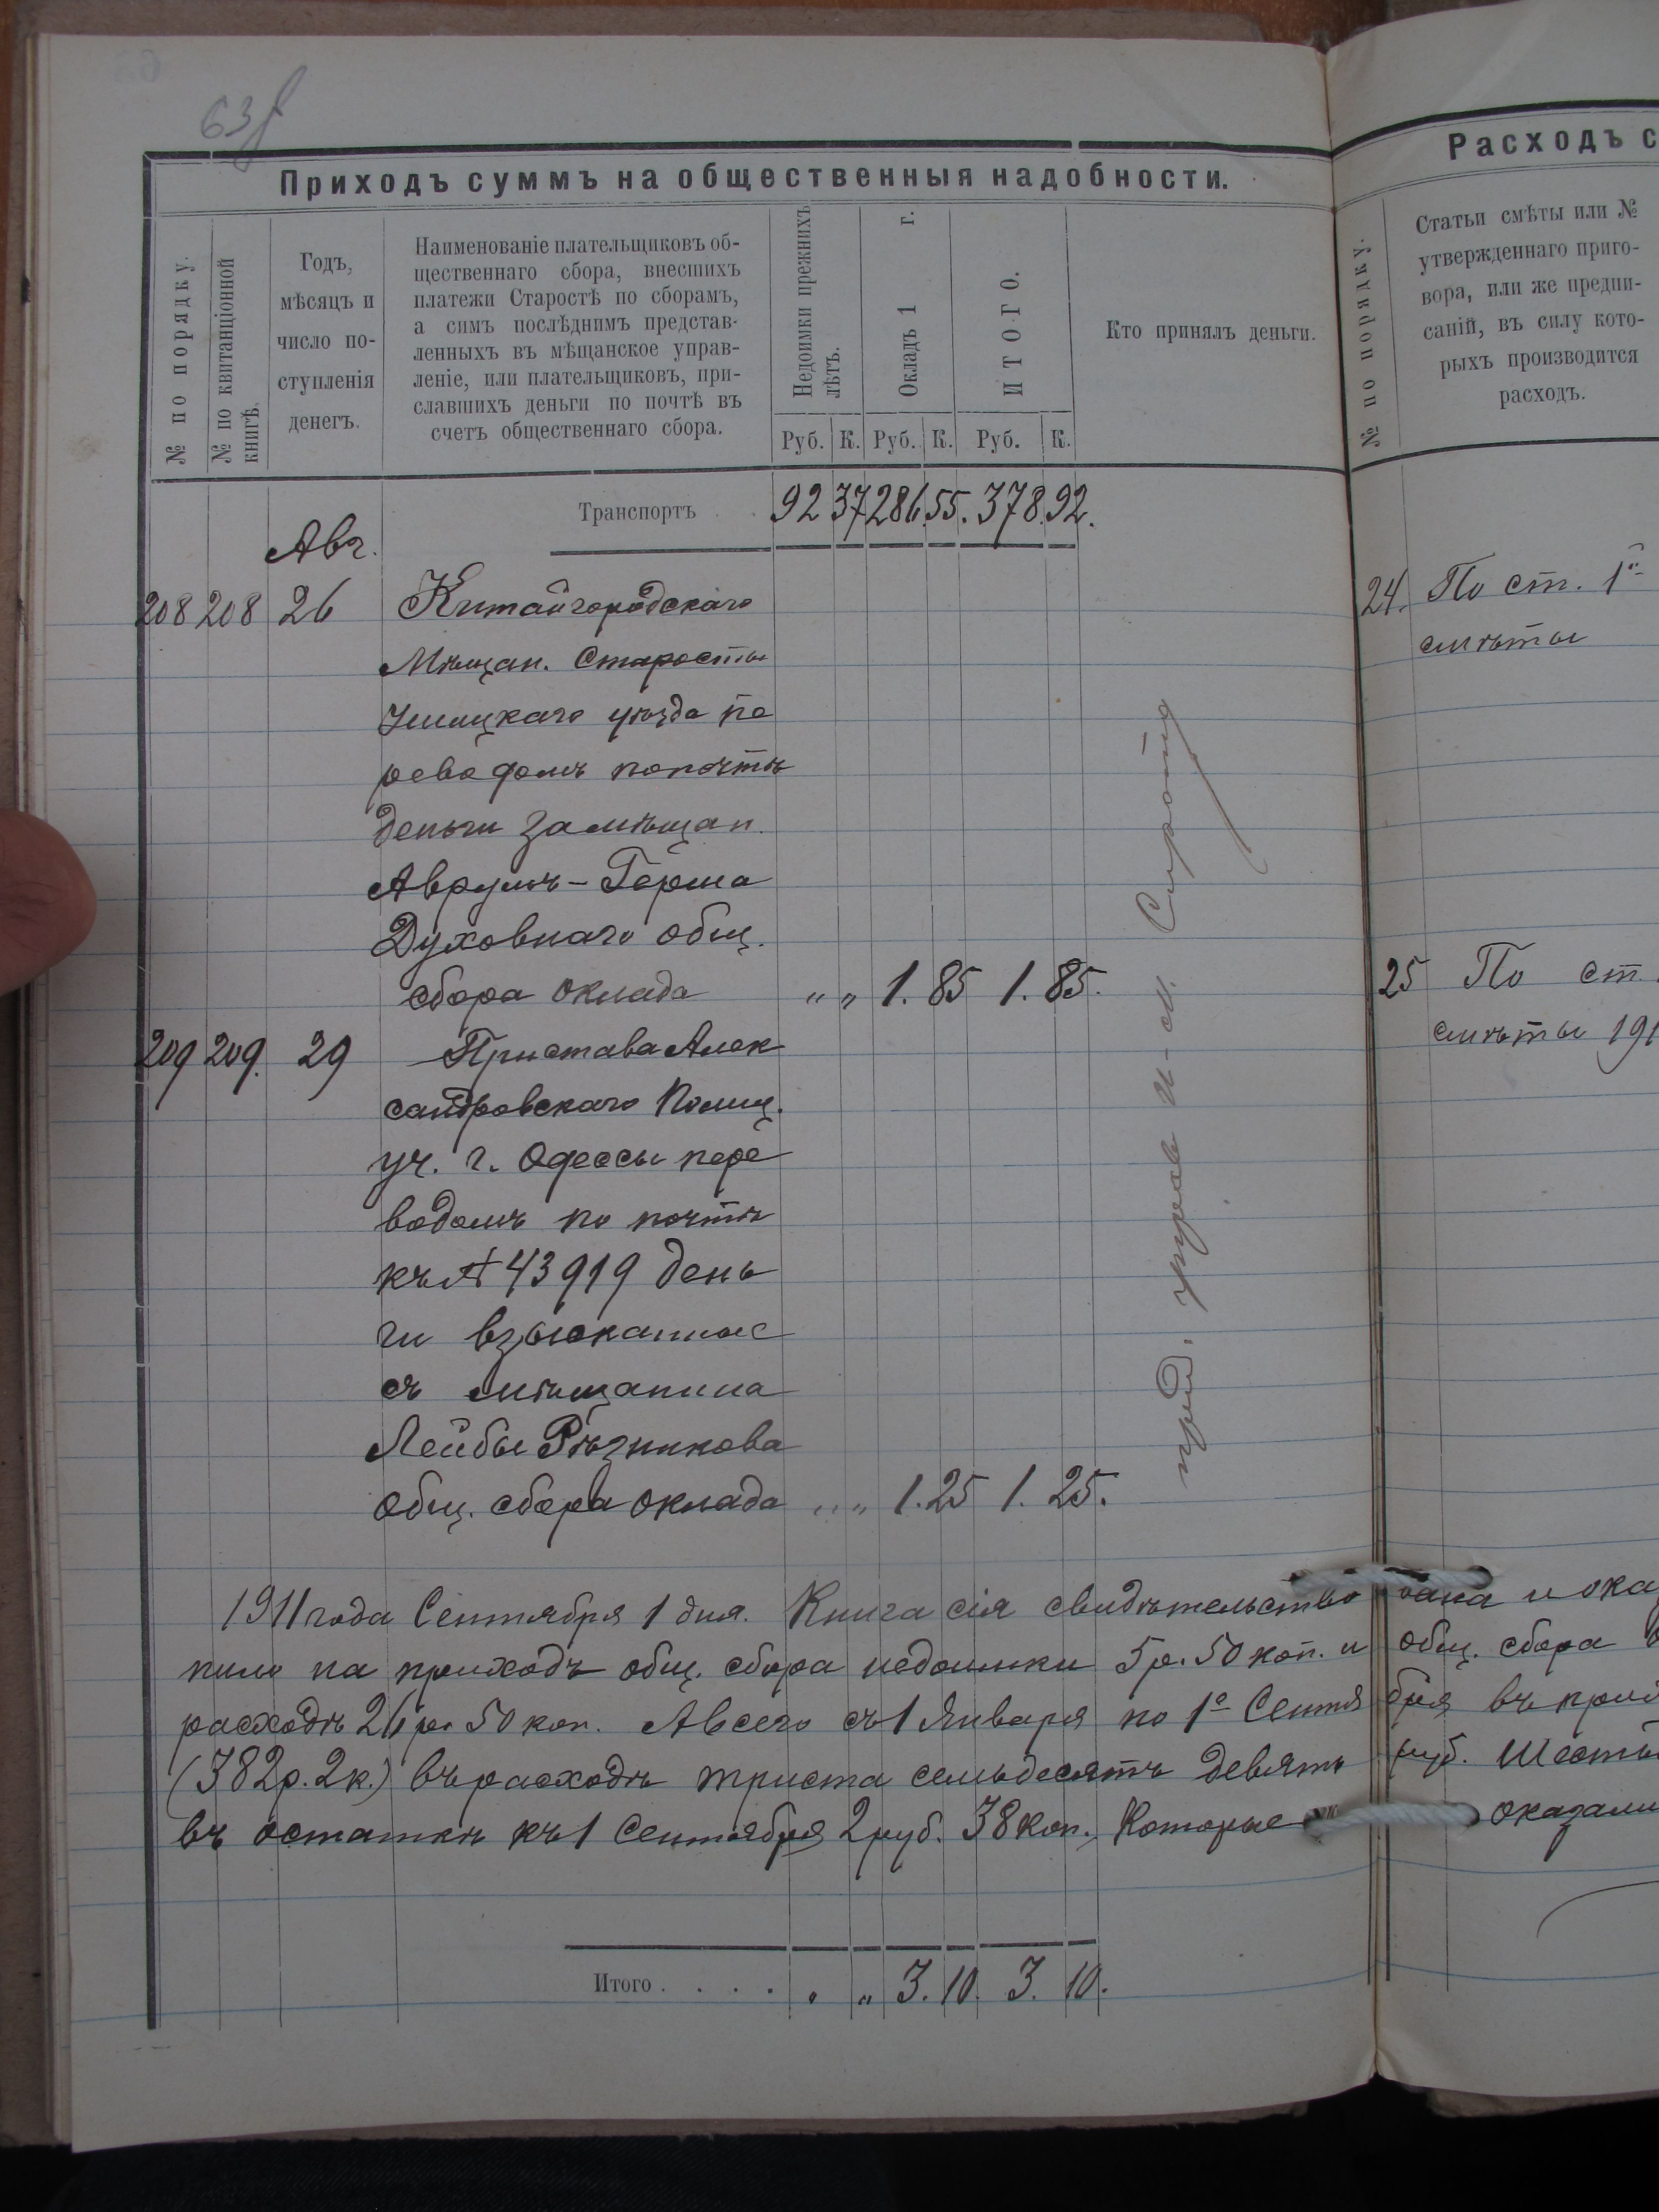 63
Приходъ суммъ на общественныя надобности.
№ по порядку.
№ по квитанціонной книгѣ.
Годъ,
мѣсяцъ и
число по-
ступленія
денегъ.
Наименованіе плательщиковъ об-
щественнаго сбора, внесшихъ
платежи Старостѣ по сборамъ,
а симъ послѣднимъ представ-
ленныхъ въ мѣщанское управ-
леніе, или плательщиковъ, при-
славшихъ деньги по почтѣ въ
счетъ общественнаго сбора.
Недоимки прежнихъ
лѣтъ.
Окладъ 1 г.
ИТОГО.
Руб. К. Руб. К. Руб. К.
Кто принялъ деньги.
Транспортъ . . 92 37 286 55. 378. 92.
Авг.
208 208 26 Китайгородскаго
Мѣщан. Старосты
Ушицкаго уѣзда пе
реводомъ по почтѣ
деньги за мѣщан.
Аврумъ-Герша
Духовнаго общ.
сбора оклада „ „ 1. 85 1. 85.
209 209. 29 Пристава Алек
сандровскаго Полиц.
уч. г. Одессы пере
водомъ по почтѣ
къ № 43919 день
ги взысканные
съ мѣщанина
Лейбы Рѣзникова
общ. сбора оклада „ „ 1. 25 1. 25.
1911 года Сентября 1 дня. Книга сія свидѣтельствована и ока
пило на приходъ общ. сбора недоимки 5 р. 50 коп. и общ. сбора
расходъ 26 р. 50 коп. А всего съ 1 Января по 1е Сентября въ при
(382 р. 2 к.) въ расходъ триста семьдесятъ девять руб. шесть
въ остаткѣ къ 1 Сентября 2 руб. 38 коп. Которые оказали
Итого . . . . „ „ 3. 10. 3. 10.
Расходъ с
№ по порядку.
Статьи смѣты или №
утвержденнаго приго-
вора, или же предпи-
саній, въ силу кото-
рыхъ производится
расходъ.
24. По ст. 1й
смѣты
25 По ст.
смѣты 191